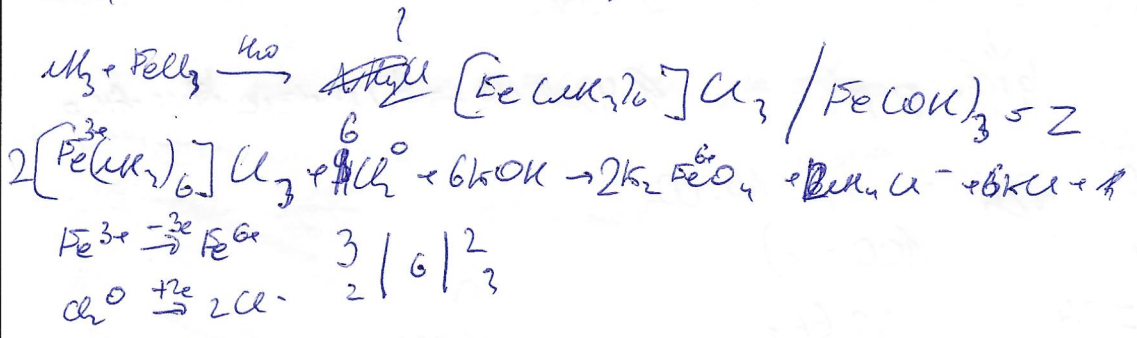 ?
NH₃ + FeCl₃ —H₂O→ [Fe(NH₃)₆]Cl₃ / Fe(OH)₃ = Z
2[Fe³⁺(NH₃)₆]Cl₃ + 6Cl₂⁰ + 6KOH → 2K₂Fe⁶⁺O₄ + NH₄Cl⁻ + 6KCl +
Fe³⁺ —-3e→ Fe⁶⁺ 3 | 6 | 2
Cl₂⁰ —+2e→ 2Cl⁻ 2 3